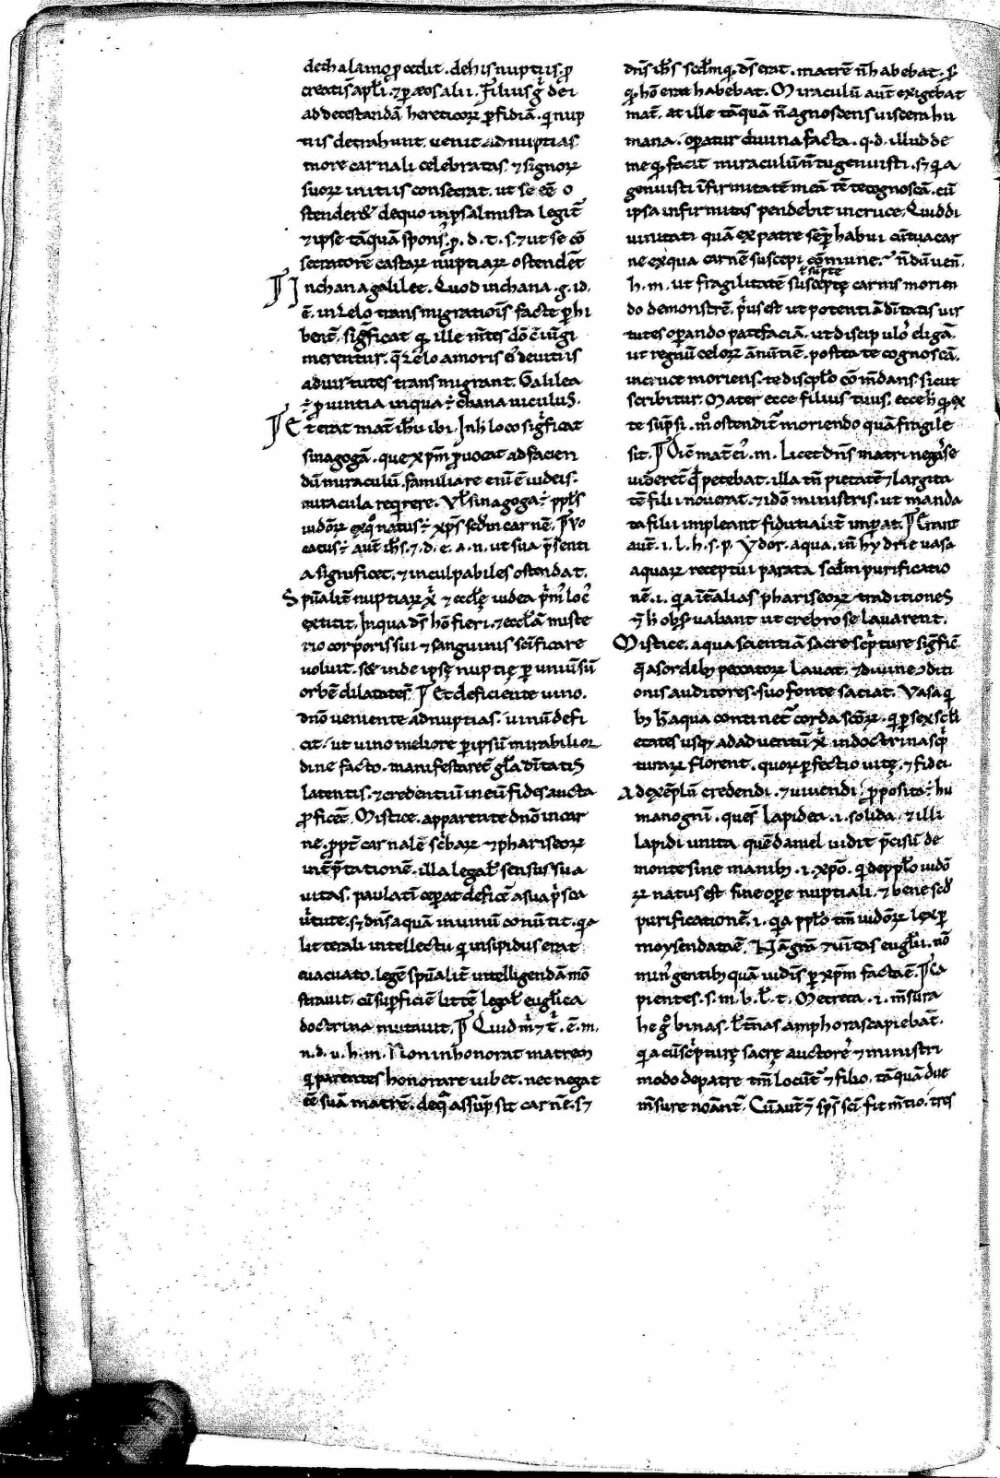 dethalamo ꝓcedit. dehis nuptiis. ꝑ
creatis apłi. ⁊ ꝑ eos alii. Filius g̊ dei
ad detestandā hereticoꝝ ꝑfidiā. qi nup
tiis detrahunt. uenit ad nuptias
more carnali celebratas. ⁊ signoꝝ
suoꝝ initiis consecrat. ut se eē o
stender&. de quo in psalmista legit̄
⁊ ipse tāquā spons᾽. ꝓ. d. t. s. ⁊ ut se cō
secratorē castaꝝ nuptiaꝝ ostendēt
¶ Inchana galilee. Quod inchana .g. id.
ē. in zelo transmigrationis facte ꝑhi
bent̄. significat qꝫ ille mētes dō c̄iūgi
merentur. q̄ zelo amoris ei᾽ de uitiis
ad uirtutes transmigrant. Galilea
÷ ꝓuintia in qua ÷ chana uiculus.
¶ Et erat mat̄ ih̄u ibi. In h̄ loco significat
sinagogā. que xp̄m ꝓuocat ad facien
dū miraculū. familiare enī ē iudeis.
miracula reqirere. Vł sinagoga ÷ ppłs
iudōꝝ ex q̊ natus ÷ xp̄s scdm carnē. ¶ Vo
catus ÷ aut̄ ih̄s. ⁊ .d. e. a. n. ut sua p̄senti
a significet. ⁊ inculpabiles ostendat.
Spūalit̄ nuptiaꝝ x̄i ⁊ eccłę iudea p̄m᾽ loc᾽
extitit. In qua ds̄ hō fieri. ⁊ eccłā miste
rio corporis sui ⁊ sanguinis scificare
uoluit. sed inde ipsę nuptię ꝑ uniūsū
orbē dilatatę sī. ¶ Et deficiente uino.
dn̄o ueniente ad nuptias. uinū defi
cit. ut uino meliore ꝑ ipsum mirabilior
dine facto. manifestaret̄ głia diitatis
latentis. ⁊ credentiū in eū fides aucta
ꝓficēt. Mistice. apparente dn̄o in car
ne. ꝓpt̄ carnalē scbaꝝ ⁊ phariseoꝝ
int̄p̄tationē. illa legał sensus sua
uitas. paulatī cepat deficē a sua p̄sca
ūtute. s; dn̄s aquā in uinū conūtit. qa
litterali intellectu qi insipidus erat
euacuato. legē spūalit̄ intelligendā mō
strauit. cū suꝑficiē littę legał eugłica
doctrina mutauit. ¶ Quid m̄ ⁊ t᾽. ē. m.
n. d. u. h. m. Non inhonorat matrem
qi parentes honorare iubet. nec negat
eē suā matrē. de q̄ assūpsit carnē. s;
dn̄s ih̄s scdm qꝫ ds̄ erat. matrē n̄ habebat. s;
qꝫ hō erat habebat. Miraculū aut̄ exigebat
mat̄. at ille tāquā n̄ agnoscens uiscera hu
mana. oꝑatur diuina facta. q. d. illud de
me qꝫ facit miraculū n̄ tu genuisti. s; qi a
genuisti īfirmitatē meā tē te cognoscā. cū
ipsa infirmitas pendebit in cruce. Quid di
uinitati quā ex patre seꝑ habui cū tua car
ne ex qua carnē suscepi cōmune. n̄dū uen̄.
h. m. ut fragilitatē susceptę carnis morien
do demonstrē. p̄us est ut potentiā diitatis uir
tutes oꝑando patefaciā. ut discipulos eligā.
ut regnū celoꝝ ānūtiē. postea te cognoscā.
in cruce moriens. te discipło cōm̄dans. sicut
scribitur. Mater ecce filius tuus. ecce h᾽ qꝫ ex
te sūpsi. m̊ ostendit̄ moriendo quā fragile
sit. ¶ Dic̄ mat̄ ei᾽. m. Licet dn̄s matri negasse
uideret̄ qd petebat. illa tn̄ pietatē ⁊ largita
tē filii nouerat. ⁊ idō ministris. ut manda
ta filii impleant fidutialit̄ imꝑat. ¶ Erant
aut̄. i. l. h. s. p. Ydor. aqua. in̄ hydrie uasa
aquaꝝ receptui parata. scdm purificatio
nē .i. qa it̄ alias phariseoꝝ traditiones
⁊ h᾽ obsuabant ut crebro se lauarent.
Mistice. aqua scientiā sacre scpture signific̄.
q̄ a sordibꝫ peccatoꝝ lauat. ⁊ diuine ꝯditi
onis auditores. suo fonte satiat. Vasa qi
bꝫ h̄ aqua continet̄ corda scōꝝ. qi ꝑ sex scli
etates usqꝫ ad aduentū x̄i. in doctrina scp̄
turaꝝ florent. quoꝝ ꝑfectio uitę. ⁊ fidei
Ad exēplū credendi. ⁊ uiuendi. ꝓposita ÷ hu
mano gn̄i. ques lapidea .i. solida. ⁊ illi
lapidi unita quē daniel uidit p̄cisū de
monte sine manibꝫ .i. xp̄o. qi de ppło iudō
ꝝ natus est sine oꝑe nuptiali. ⁊ bene scdm
purificationē .i. qa ppło tm̄ iudōꝝ lex ꝑ
moysen data ē. Nā gr̄a ⁊ ūitas eugłii. nō
min᾽ gentibꝫ quā iudis ꝑ xp̄m facta ē. ¶ Ca
pientes. s. m. b. ł. t. Metreta .i. m̄sura
he g̊ binas. ł t̄nas amphoras capiebāt.
qi a cū scpturę sacrę auctores ⁊ ministri
modo de patre tm̄ locunt̄ ⁊ filio. tāquā due
m̄sure noānt̄. Cū aut̄ ⁊ sps̄ sci fit m̄tio. tres